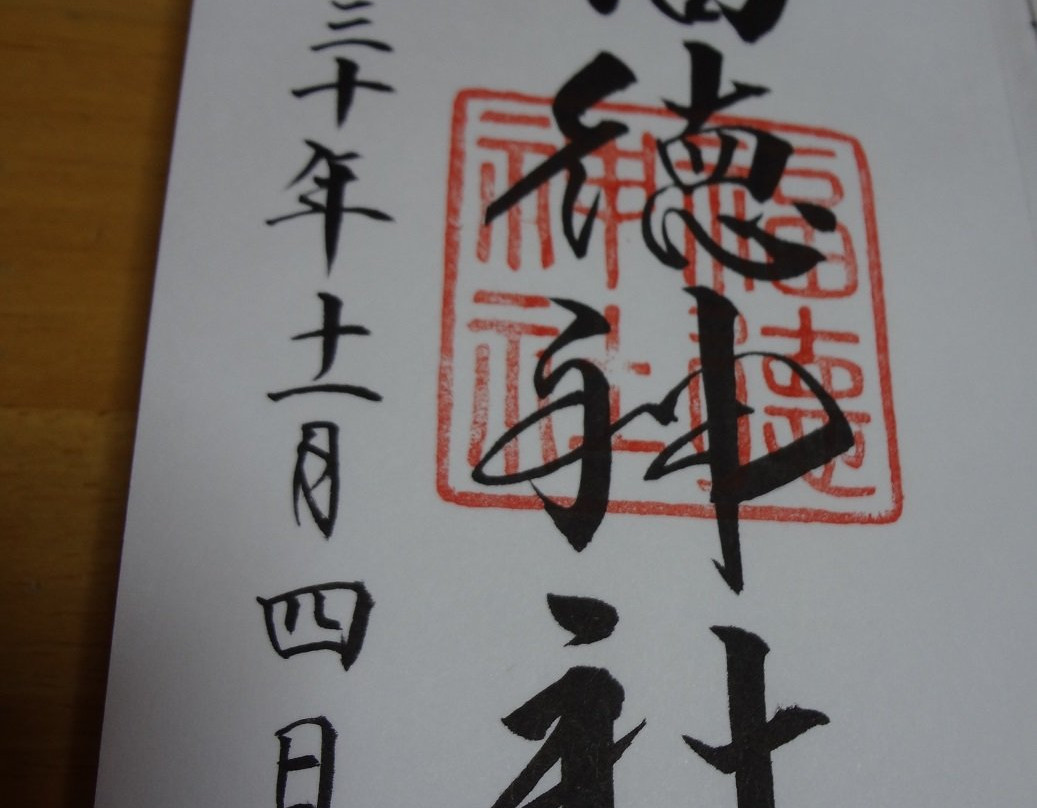 福徳神社
三十年十一月四日
福徳
神社